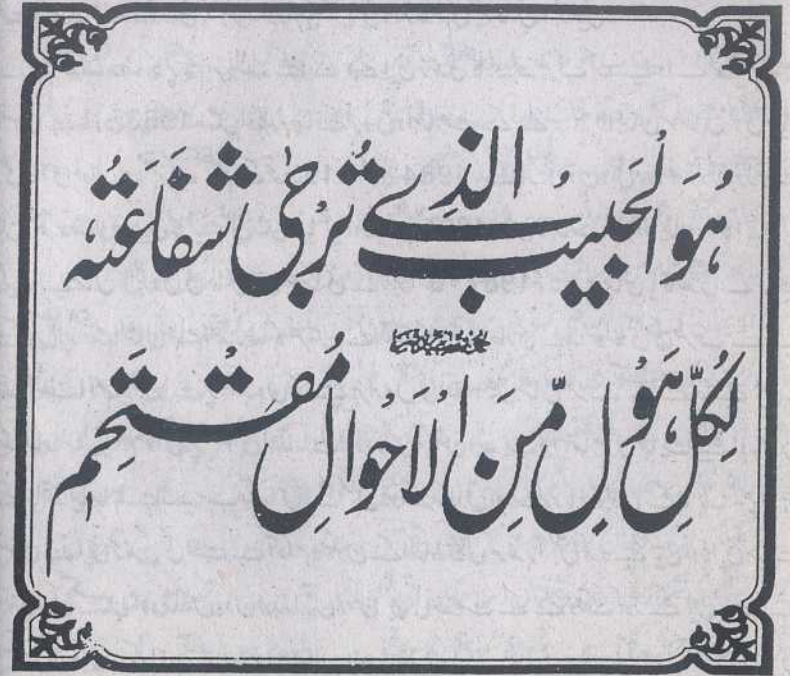 هُوَ الْحَبِيبُ الَّذِي تُرْجٰى شَفَاعَتُهٗ
لِكُلِّ هَوْلٍ مِّنَ الْاَحْوَالِ مُقْتَحِمٖ